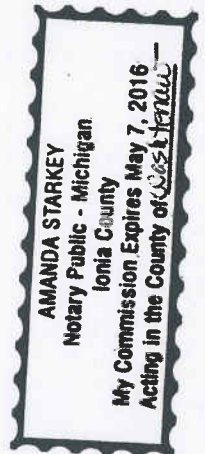 AMANDA STARKEY
Notary Public - Michigan
Ionia County
My Commission Expires May 7, 2016
Acting in the County of Washtenaw